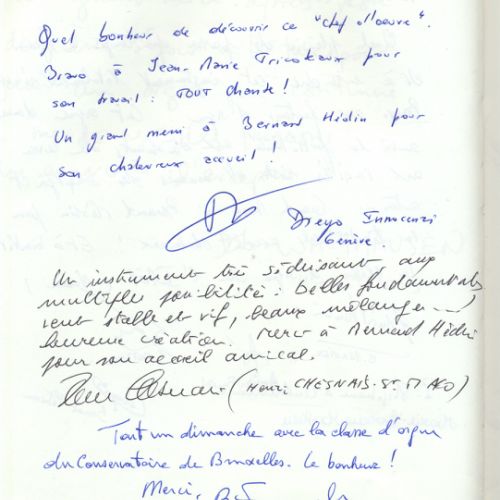 Quel bonheur de découvrir ce "chef d'oeuvre".
Bravo à Jean-Marie Tricoteaux pour
son travail : TOUT chante !
Un grand merci à Bernard Hédin pour
son chaleureux accueil !
Diego Innocenzi
Genève.
Un instrument très séduisant, aux
multiples possibilités : belles fondamentales
vent stable et vif, beaux mélanges
heureuse création. Merci à Bernard Hédin
pour son accueil amical.
(Henri CHESNAIS - St MALO)
Tout un dimanche avec la classe d'orgue
du Conservatoire de Bruxelles. Le bonheur !
Merci,